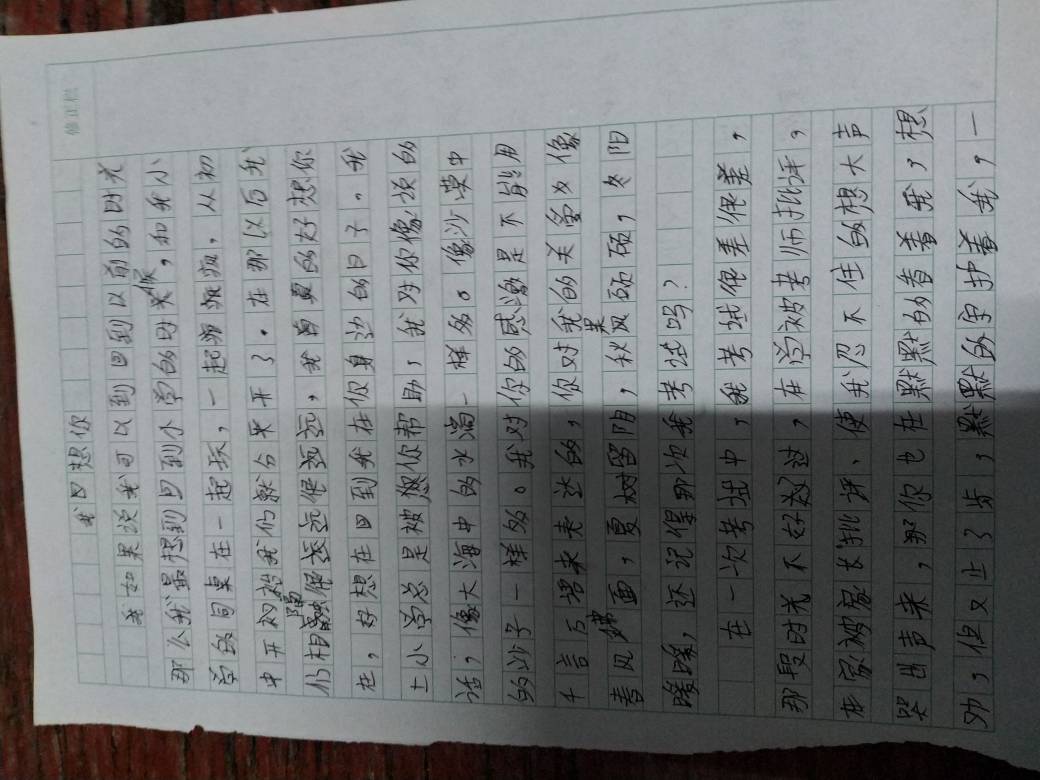 修正栏
我回想你
我如果说我可以到回到以前的时光
那么我最想到回到小学的时候，和我小
学的同桌在一起玩，一起疯疯，从初
中开初始我们就分来开了。在那以后我
们相隔很远很远远，我真真的好想你
在，好想在回到我在你身边的日子。我
上小学总是被您你帮助，我对你像颂的
话，像大海中的水滴一样多。像沙漠中
的沙子一样多。我对你的感激是不能用
千言万语来表达的，你对我的关爱又像
春风拂面，夏树留阴，秋果风硕硕，冬阳
暖暖，还记得那次我考试吗？
在一次考试中，我考试很差很差，
那段时光不好好过，在学被老师批评，
在家被家长批评、使我忍不住的想大声
哭出声来，那你也在默默的看着我，想
劝，但又止了步，默默的守护着我，一